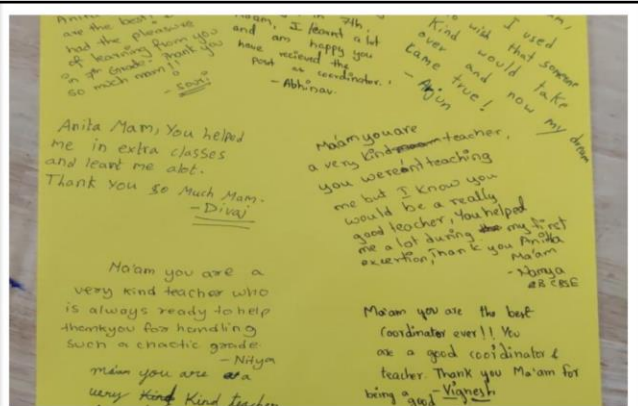 Anita
are the best!
had the pleasure
of learning from you
in 7th Grade. Thank you
so much mam!!
- Sovi
in 7th,
Maam, I learnt a lot
and am happy you
have recieved the
post as coordinator.
- Abhinav
I used
to wish that someone
Kind would take
over and now my dream
came true!
- Arjun
Anita Mam, You helped
me in extra classes
and learnt me alot.
Thank You So Much Mam.
- Divai
Ma'am you are
a very kind teacher,
you weren't teaching
me but I know you
would be a really
good teacher, You helped
me a lot during my first
excertion, Thank you Anitta
Ma'am
- Namya
8B CBSE
Ma'am you are a
very kind teacher who
is always ready to help
thankyou for handling
such a chaotic grade.
- Nitya
Ma'am you are the best
coordinator ever!! You
are a good coordinator &
teacher. Thank you Ma'am for
being a good
- Vignesh
mam you are a
very Kind teacher